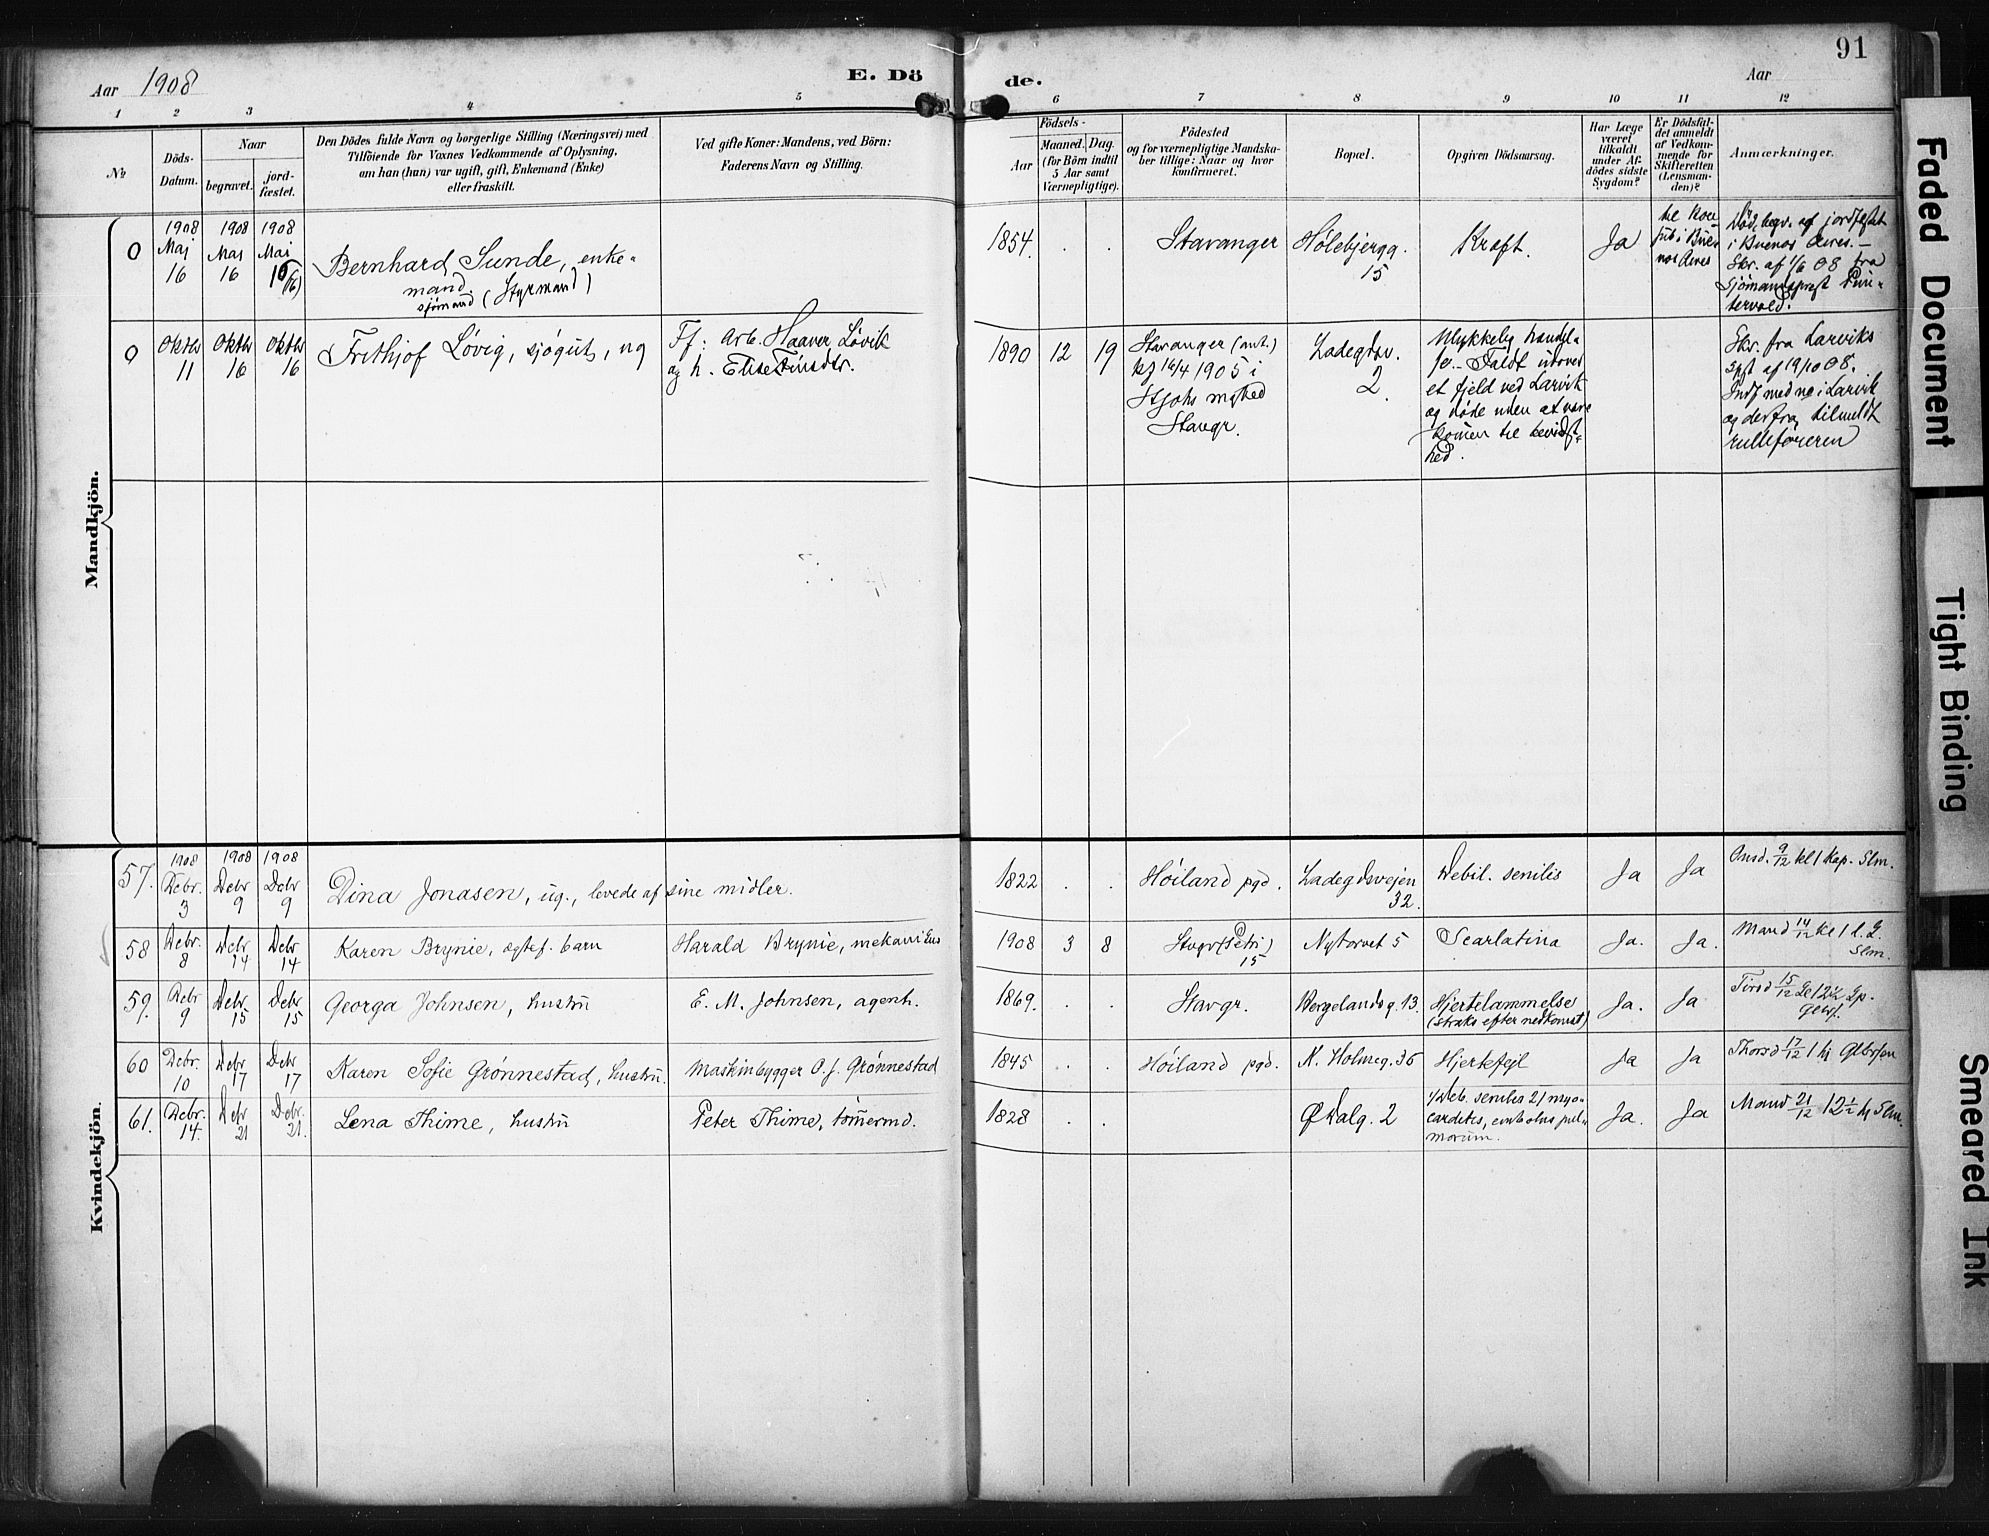 91
Aar 1908
E. Döde.
Aar
1 2 3 4 5 6 7 8 9 10 11 12
No
Döds-Datum.
Naar
begravet.
jord-fæstet.
Den Dödes fulde Navn og borgerlige Stilling (Næringsvei) med
Tilföiende for Voxnes Vedkommende af Oplysning,
om han (hun) var ugift, gift, Enkemand (Enke)
eller fraskilt.
Ved gifte Koner: Mandens, ved Börn:
Faderens Navn og Stilling.
Födsels-
Aar
Maaned.
Dag.
(for Börn indtil
5 Aar samt
Værnepligtige).
Födested
og for værnepligtige Mandska-
ber tillige: Naar og hvor
konfirmeret.
Bopæl.
Opgiven Dödsaarsag.
Har Læge
været
tilkaldt
under Af-
dödes sidste
Sygdom?
Er Dödsfal-
det anmeldt
af Vedkom-
mende for
Skifteretten
(Lensman-
den)?
Anmærkninger.
Mandkjön.
0
1908 Maj 16
1908 Maj 16
1908 Mai 16 (16)
Bernhard Sunde, enke-
mand.
sjømand (Styrmand)
1854. . .
Stavanger
Holebjergg.
15
Kræft.
Ja
til Kon-
sul i Bue-
nos Aires
Død, begr. og jordfæstet
i Buenos Aires. –
Skr. af 1/6 08 fra
Sjømandsprest
0
Oktbr 11
Oktbr 16
Oktbr 16
Frithjof Løvig, sjøgut, ug
Ff: Arb. Haaver Løvik
og h. Elise Finsdtr.
1890 12 19
Stavanger (ant.)
kf 16/4 1905 i
St Johs mghed
Stavgr.
Ladegdsv.
2.
Ulykkelig hændel-
se – Faldt utover
et fjeld ved Larvik
og døde uden at være
kommen til bevidst-
hed.
Skr. fra Larviks
Spst af 19/10 08.
Indf med no i Larvik
og derfra tilmeldt
rulleføreren
Kvindekjön.
57.
1908 Debr. 3
1908 Debr 9
1908 Debr 9
Dina Jonasen, ug., levede af sine midler.
1822 . .
Høiland pgd.
Ladegdsvejen
32.
Debil. senilis
Ja
Ja
Onsd. 9/12 kl 1 Kap. Slm.
58
Debr. 8
Debr 14
Debr 14
Karen Brynie, ægtef. barn
Harald Brynie, mekanikus
1908 3 8
Stvgr (Petri)
15
Nytorvet 5
Scarlatina
Ja.
Ja.
Mand 14/12 kl 1 l. G.
Slm.
59.
Debr 9
Debr 15
Debr 15
Georga Johnsen, hustru
E. M. Johnsen, agent.
1869. . .
Stavgr.
Bergelandsg. 13.
Hjertelammelse
(straks efter nedkomst)
Ja.
Ja
Tirsd 15/12
60
Debr. 10
Debr 17
Debr 17
Karen Sofie Grønnestad, hustru.
Maskinbygger O. J. Grønnestad
1845 . .
Høiland pgd.
N. Holmeg. 36
Hjertefejl
Ja
Ja
Thorsd 17/12 1 hj
61.
Debr. 14.
Debr 21
Debr. 21.
Lena Thime, hustru
Peter Thime, tømermd.
1828 . .
Ø Dalg. 2
1/ Deb. senilis 2/ myo-
carditis, embolus pul-
monum.
Ja.
Ja
Mand 21/12 12½ hj Slm.
Faded Document
Tight Binding
Smeared Ink